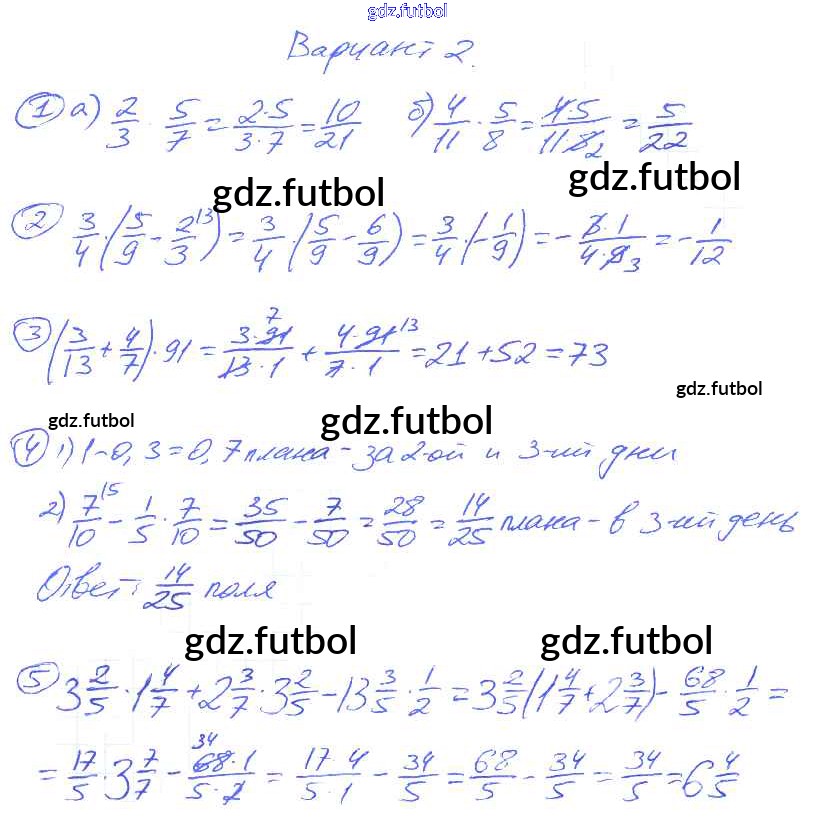 gdz.futbol
Вариант 2.
① а) 2/3 · 5/7 = 2·5/3·7 = 10/21 б) 4/11 · 5/8 = 4·5/11·8 2 = 5/22
gdz.futbol gdz.futbol
② 3/4 · (5/9 - 2/3 |3) = 3/4 · (5/9 - 6/9) = 3/4 · (-1/9) = - 3·1/4·9 3 = - 1/12
③ (3/13 + 4/7) · 91 = 3·91 7/13·1 + 4·91 13/7·1 = 21 + 52 = 73
gdz.futbol
gdz.futbol gdz.futbol
④ 1) 1 - 0,3 = 0,7 плана - за 2-ой и 3-ий дни
2) 7/10 |5 - 1/5 · 7/10 = 35/50 - 7/50 = 28/50 = 14/25 плана - в 3-ий день
Ответ: 14/25 поля
gdz.futbol gdz.futbol
⑤ 3 2/5 · 1 4/7 + 2 3/7 · 3 2/5 - 13 3/5 · 1/2 = 3 2/5 (1 4/7 + 2 3/7) - 68/5 · 1/2 =
= 17/5 · 3 7/7 - 68 34·1/5·2 = 17·4/5·1 - 34/5 = 68/5 - 34/5 = 34/5 = 6 4/5